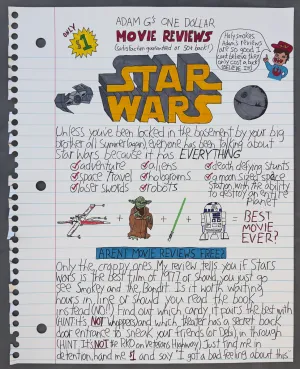 ADAM G'S ONE DOLLAR
MOVIE REVIEWS
(satisfaction guaranteed or 50¢ back!)
ONLY
$1
Holy smokes,
Adam's reviews
are so good I
can't believe they
only cost a buck!
BELIEVE IT!
STAR
WARS
Unless you've been locked in the basement by your big
brother all summer (again) everyone has been talking about
Star Wars because it has EVERYTHING
adventure
aliens
death defying stunts
space travel
holograms
a moon sized space
laser swords
robots
station with the ability
to destroy an entire
planet
+ + + =
BEST
MOVIE
EVER?
ARENT MOVIE REVIEWS FREE?
Only the crappy ones. My review tells you if Star
Wars is the best film of 1977 or should you just go
see Smokey and the Bandit. Is it worth waiting
hours in line or should you read the book
instead (NO!!) Find out which candy it pairs the best with
(HINT: It's NOT whoppers) and which theater has a secret back
door entrance to sneak your friends (or Deb), in through
(HINT: It's NOT the RKO on Veterans Highway). Just find me in
detention, hand me $1 and say "I got a bad feeling about this"